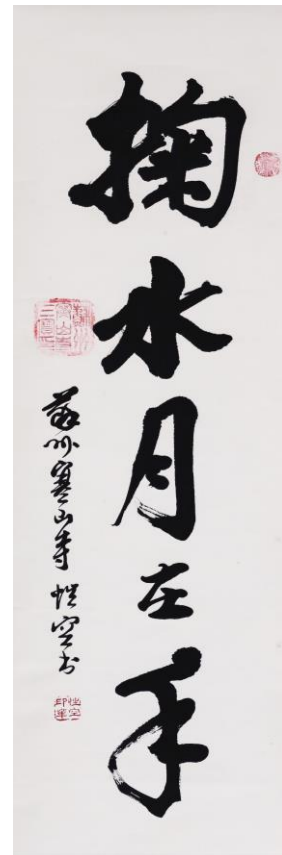 掬水月在手
蘇州寒山寺 性空书